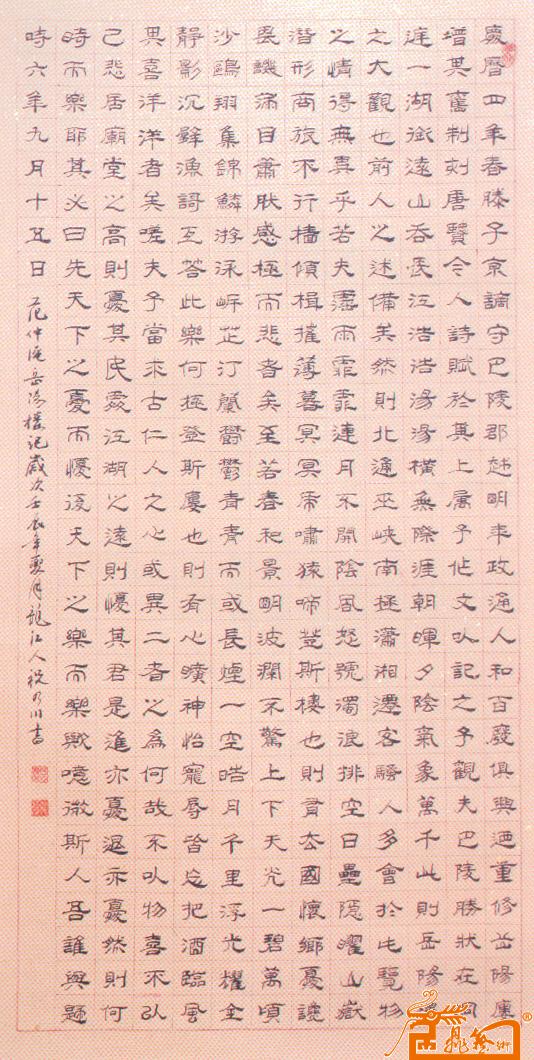 慶曆四年春滕子京謫守巴陵郡越明年政通人和百廢俱興迺重修岳陽樓
增其舊制刻唐賢今人詩賦於其上屬予作文以記之予觀夫巴陵勝狀在洞
庭一湖銜遠山吞長江浩浩湯湯橫無際涯朝暉夕陰氣象萬千此則岳陽樓
之大觀也前人之述備矣然則北通巫峽南極瀟湘遷客騷人多會於此覽物
之情得無異乎若夫霪雨霏霏連月不開陰風怒號濁浪排空日星隱曜山嶽
潛形商旅不行檣傾楫摧薄暮冥冥虎嘯猿啼登斯樓也則有去國懷鄉憂讒
畏譏滿目蕭然感極而悲者矣至若春和景明波瀾不驚上下天光一碧萬頃
沙鷗翔集錦鱗游泳岸芷汀蘭鬱鬱青青而或長煙一空皓月千里浮光耀金
靜影沉璧漁歌互答此樂何極登斯樓也則有心曠神怡寵辱皆忘把酒臨風
其喜洋洋者矣嗟夫予嘗求古仁人之心或異二者之為何哉不以物喜不以
己悲居廟堂之高則憂其民處江湖之遠則憂其君是進亦憂退亦憂然則何
時而樂耶其必曰先天下之憂而憂後天下之樂而樂歟噫微斯人吾誰與歸
時六年九月十五日
范仲淹岳陽樓記歲次壬辰年夏月龍江人祝乃川書